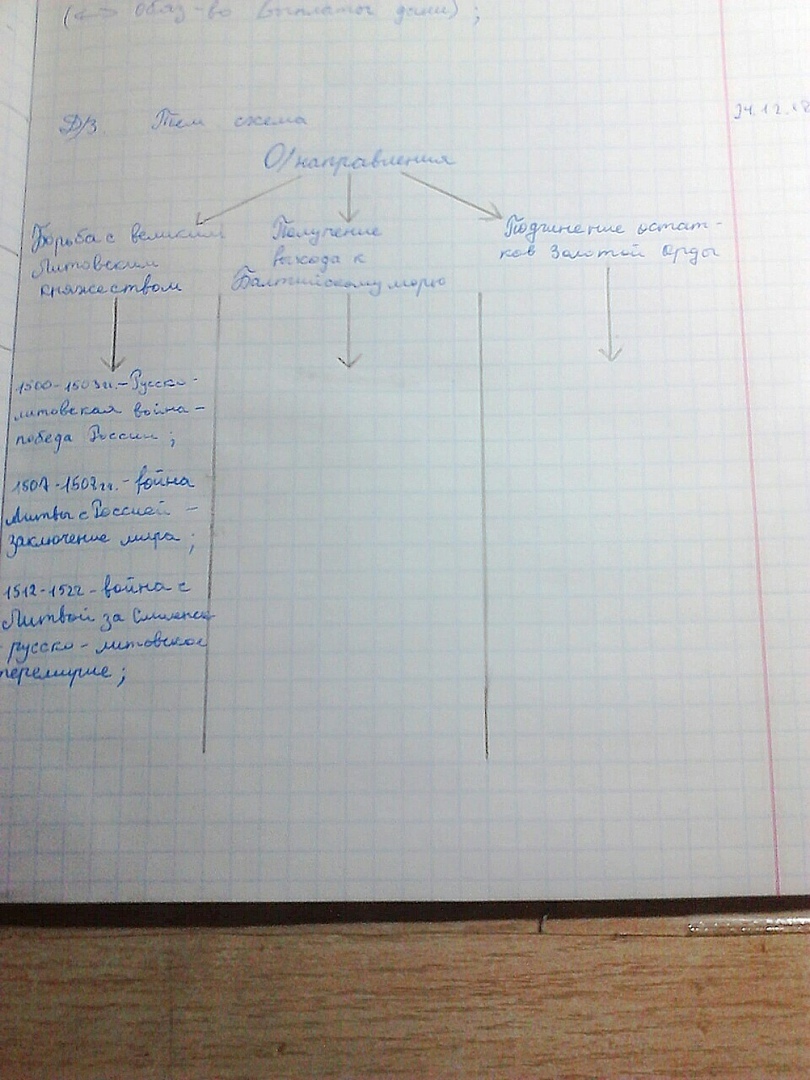 (<=> обяз-во выплаты дани) ;
24.12.18
Д/З. Тем схема
О/направления
Борьба с великим
Литовским
княжеством
Получение
выхода к
Балтийскому морю
Подчинение остат-
ков Золотой Орды
1500-1503гг.-Русско-
литовская война-
победа России ;
1507-1508гг.-война
Литвы с Россией -
заключение мира ;
1512-1522-война с
Литвой за Смоленск-
русско-литовское
перемирие ;